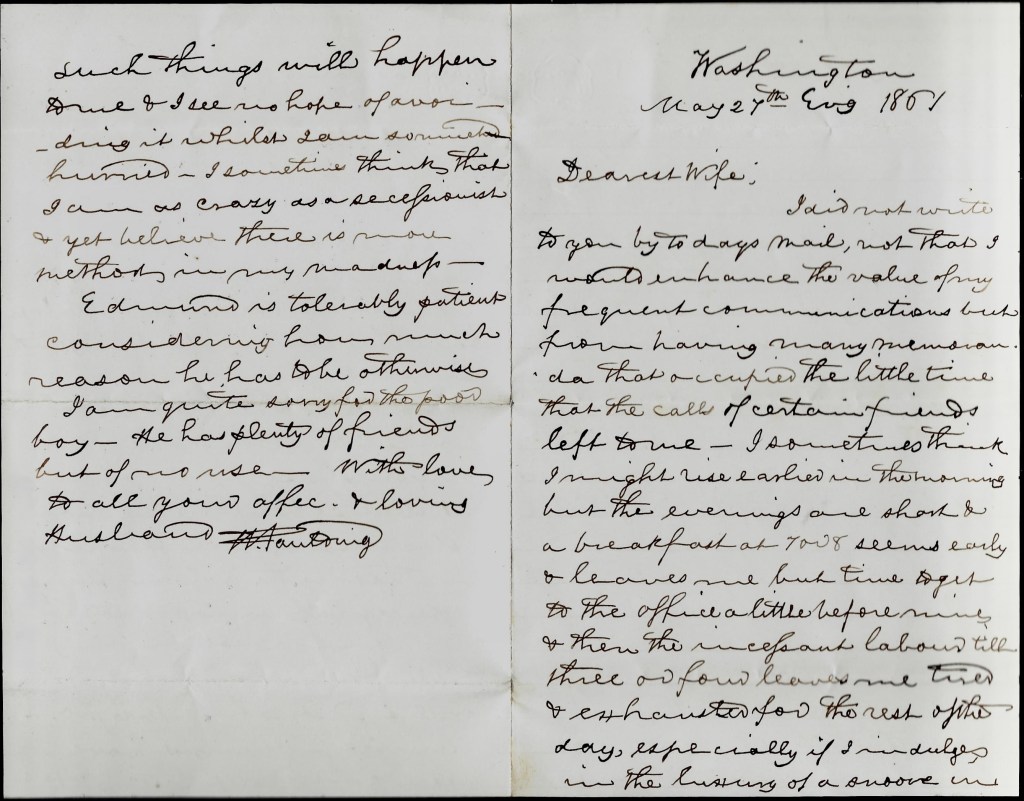 Washington
May 27th Evg 1861
Dearest Wife;
I did not write
to you by to days mail, not that I
would enhance the value of my
frequent communications but
from having many memoran-
da that occupied the little time
that the calls of certain friends
left to me - I sometimes think
I might rise earlier in the morning
but the evenings are short &
a breakfast at 7 or 8 seems early
& leaves me but time to get
to the office a little before nine,
& then the incessant labour till
three or four leaves me tired
& exhausted for the rest of the
day, especially if I indulge
in the luxury of a snooze in
such things will happen
to me & I see no hope of avoi-
-ding it whilst I am so
hurried - I sometime think that
I am as crazy as a secessionist
& yet believe there is more
method in my madness -
Edmund is tolerably patient
considering how much
reason he has to be otherwise
I am quite sorry for the poor
boy - He has plenty of friends
but of no use - With love
to all your affec. & loving
Husband H. Paulding